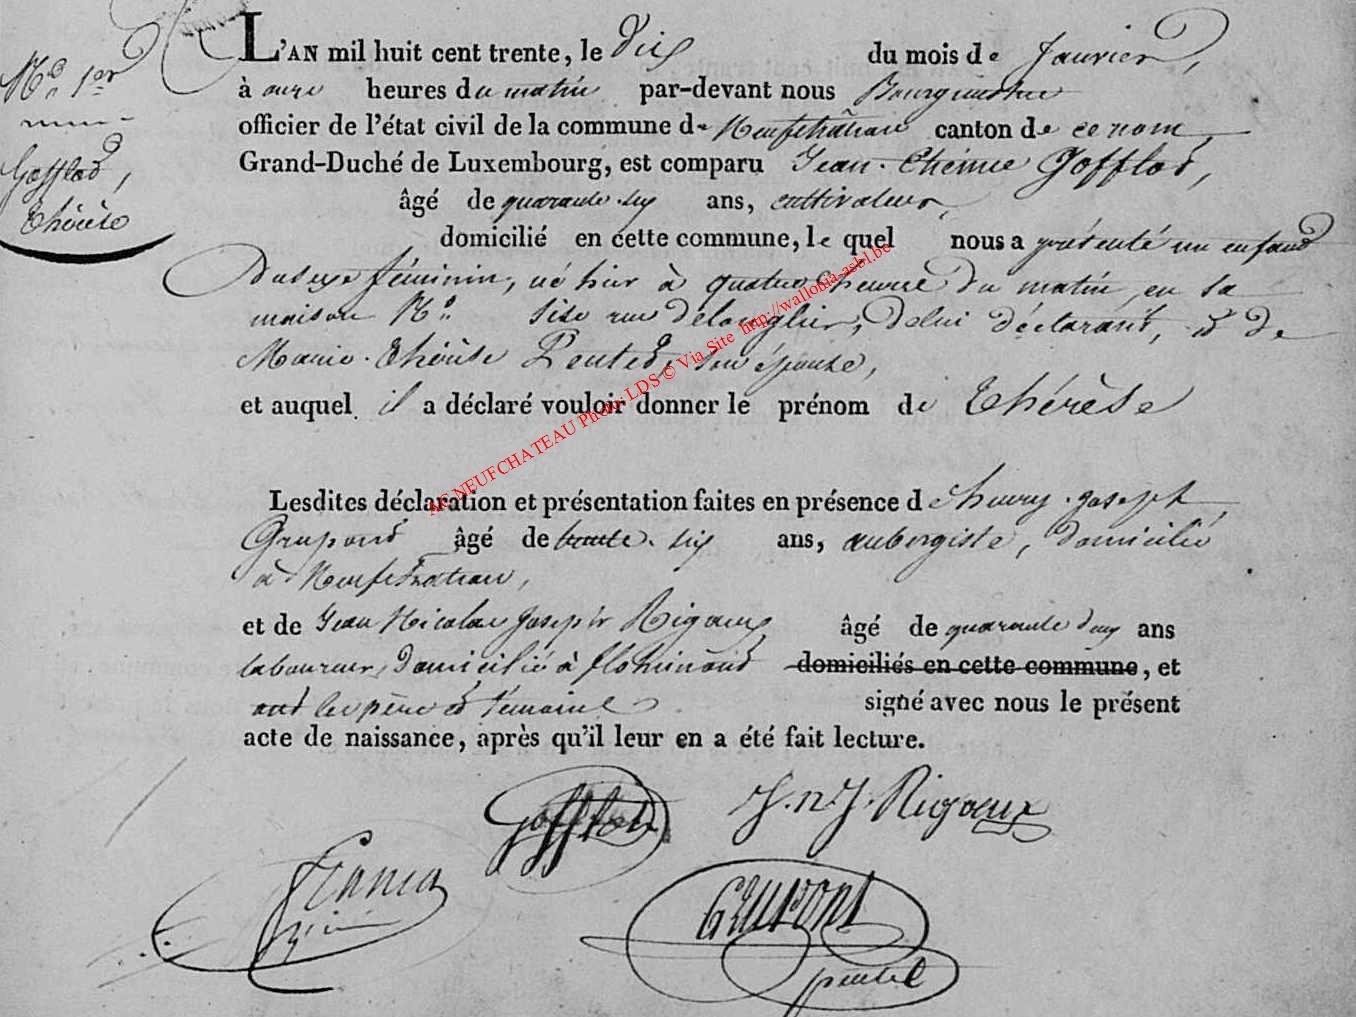 N.o 1er
Gofflot,
Thérèse
L'AN mil huit cent trente, le dix du mois de Janvier,
à onze heures du matin par-devant nous Bourgmestre
officier de l'état civil de la commune de Neufchâteau canton de ce nom
Grand-Duché de Luxembourg, est comparu Jean-Etienne Gofflot,
âgé de quarante-six ans, cultivateur,
domicilié en cette commune, le quel nous a présenté un enfant
du sexe féminin, né hier à quatre heures du matin, en sa
maison N.o sise rue de longlier, de lui déclarant, et de
Marie-Thérèse son épouse,
et auquel il a déclaré vouloir donner le prénom de Thérèse
Lesdites déclaration et présentation faites en présence d'henry-joseph
Grupont âgé de trente-six ans, aubergiste, domicilié
à Neufchateau,
et de Jean Nicolas Joseph Rigaux âgé de quarante deux ans
laboureur, domicilié à domiciliés en cette commune, et
ont les père et témoins signé avec nous le présent
acte de naissance, après qu'il leur en a été fait lecture.
Gofflot J. n. J. Rigaux
Grupont
AC NEUFCHATEAU Photo: LDS © Via Site http://wallonia-asbl.be